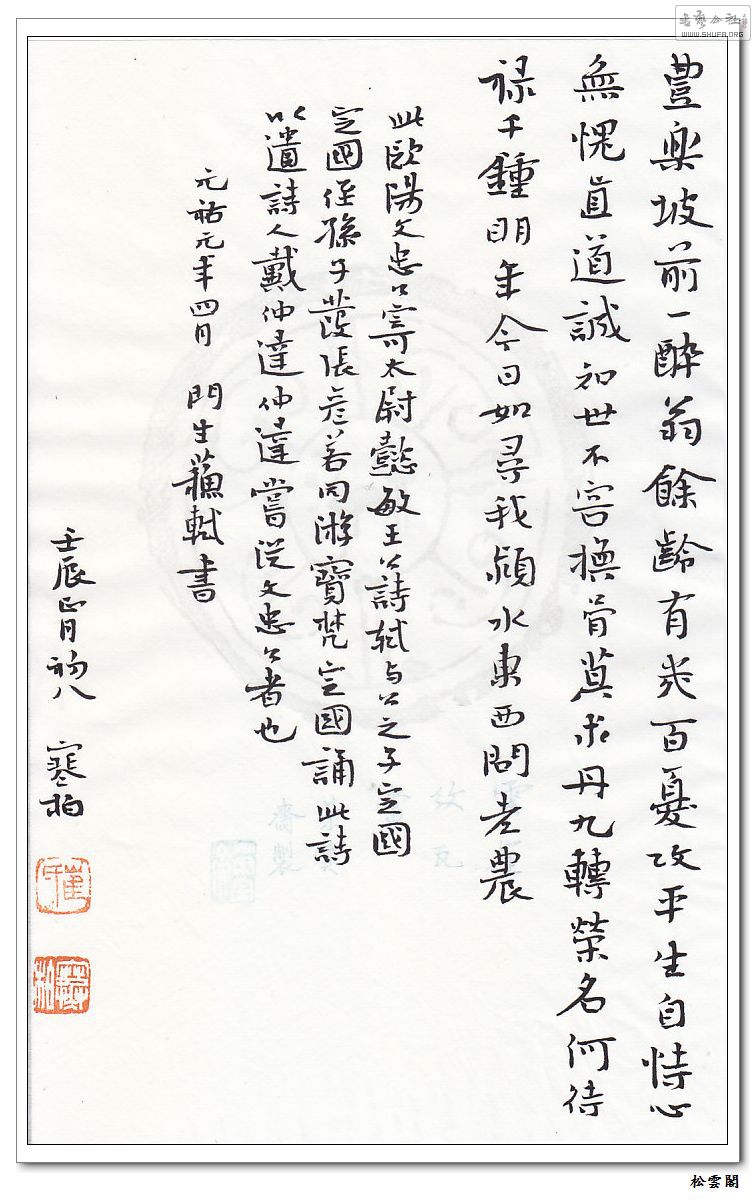 豐樂坡前一醉翁餘齡有幾百憂攻平生自恃心
無愧直道誠知世不容換骨莫求丹九轉榮名何待
祿千鍾明年今日如尋我潁水東西問老農
此歐陽文忠公寄太尉懿敏王公詩軾與公之子定國
定國侄孫子發張彥若同游寶梵定國誦此詩
以遺詩人戴仲達仲達嘗從文忠公者也
元祐元年四月 門生蘇軾書
壬辰正月初八 寒柏
書藝公社
WWW.SHUFA.ORG
齋製
松雲閣